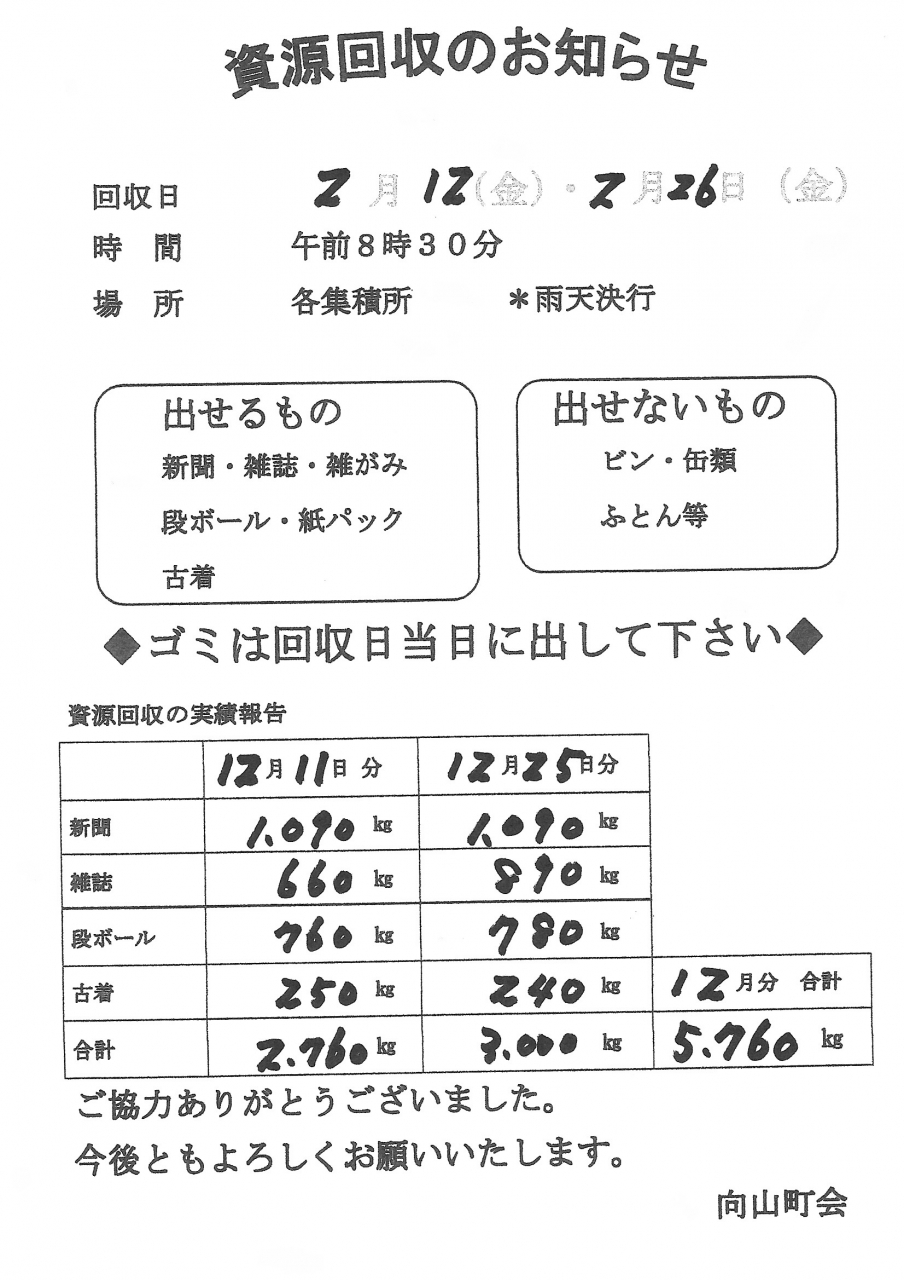 資源回収のお知らせ
回収日 2月12(金)・2月26日 (金)
時 間 午前8時30分
場 所 各集積所 *雨天決行
出せるもの
新聞・雑誌・雑がみ
段ボール・紙パック
古着
出せないもの
ビン・缶類
ふとん等
◆ゴミは回収日当日に出して下さい◆
資源回収の実績報告
12月11日 分 12月25日分
新聞 1.090 kg 1.090 kg
雑誌 660 kg 890 kg
段ボール 760 kg 780 kg
古着 250 kg 240 kg 12月分 合計
合計 2.760 kg 3.000 kg 5.760 kg
ご協力ありがとうございました。
今後ともよろしくお願いいたします。
向山町会